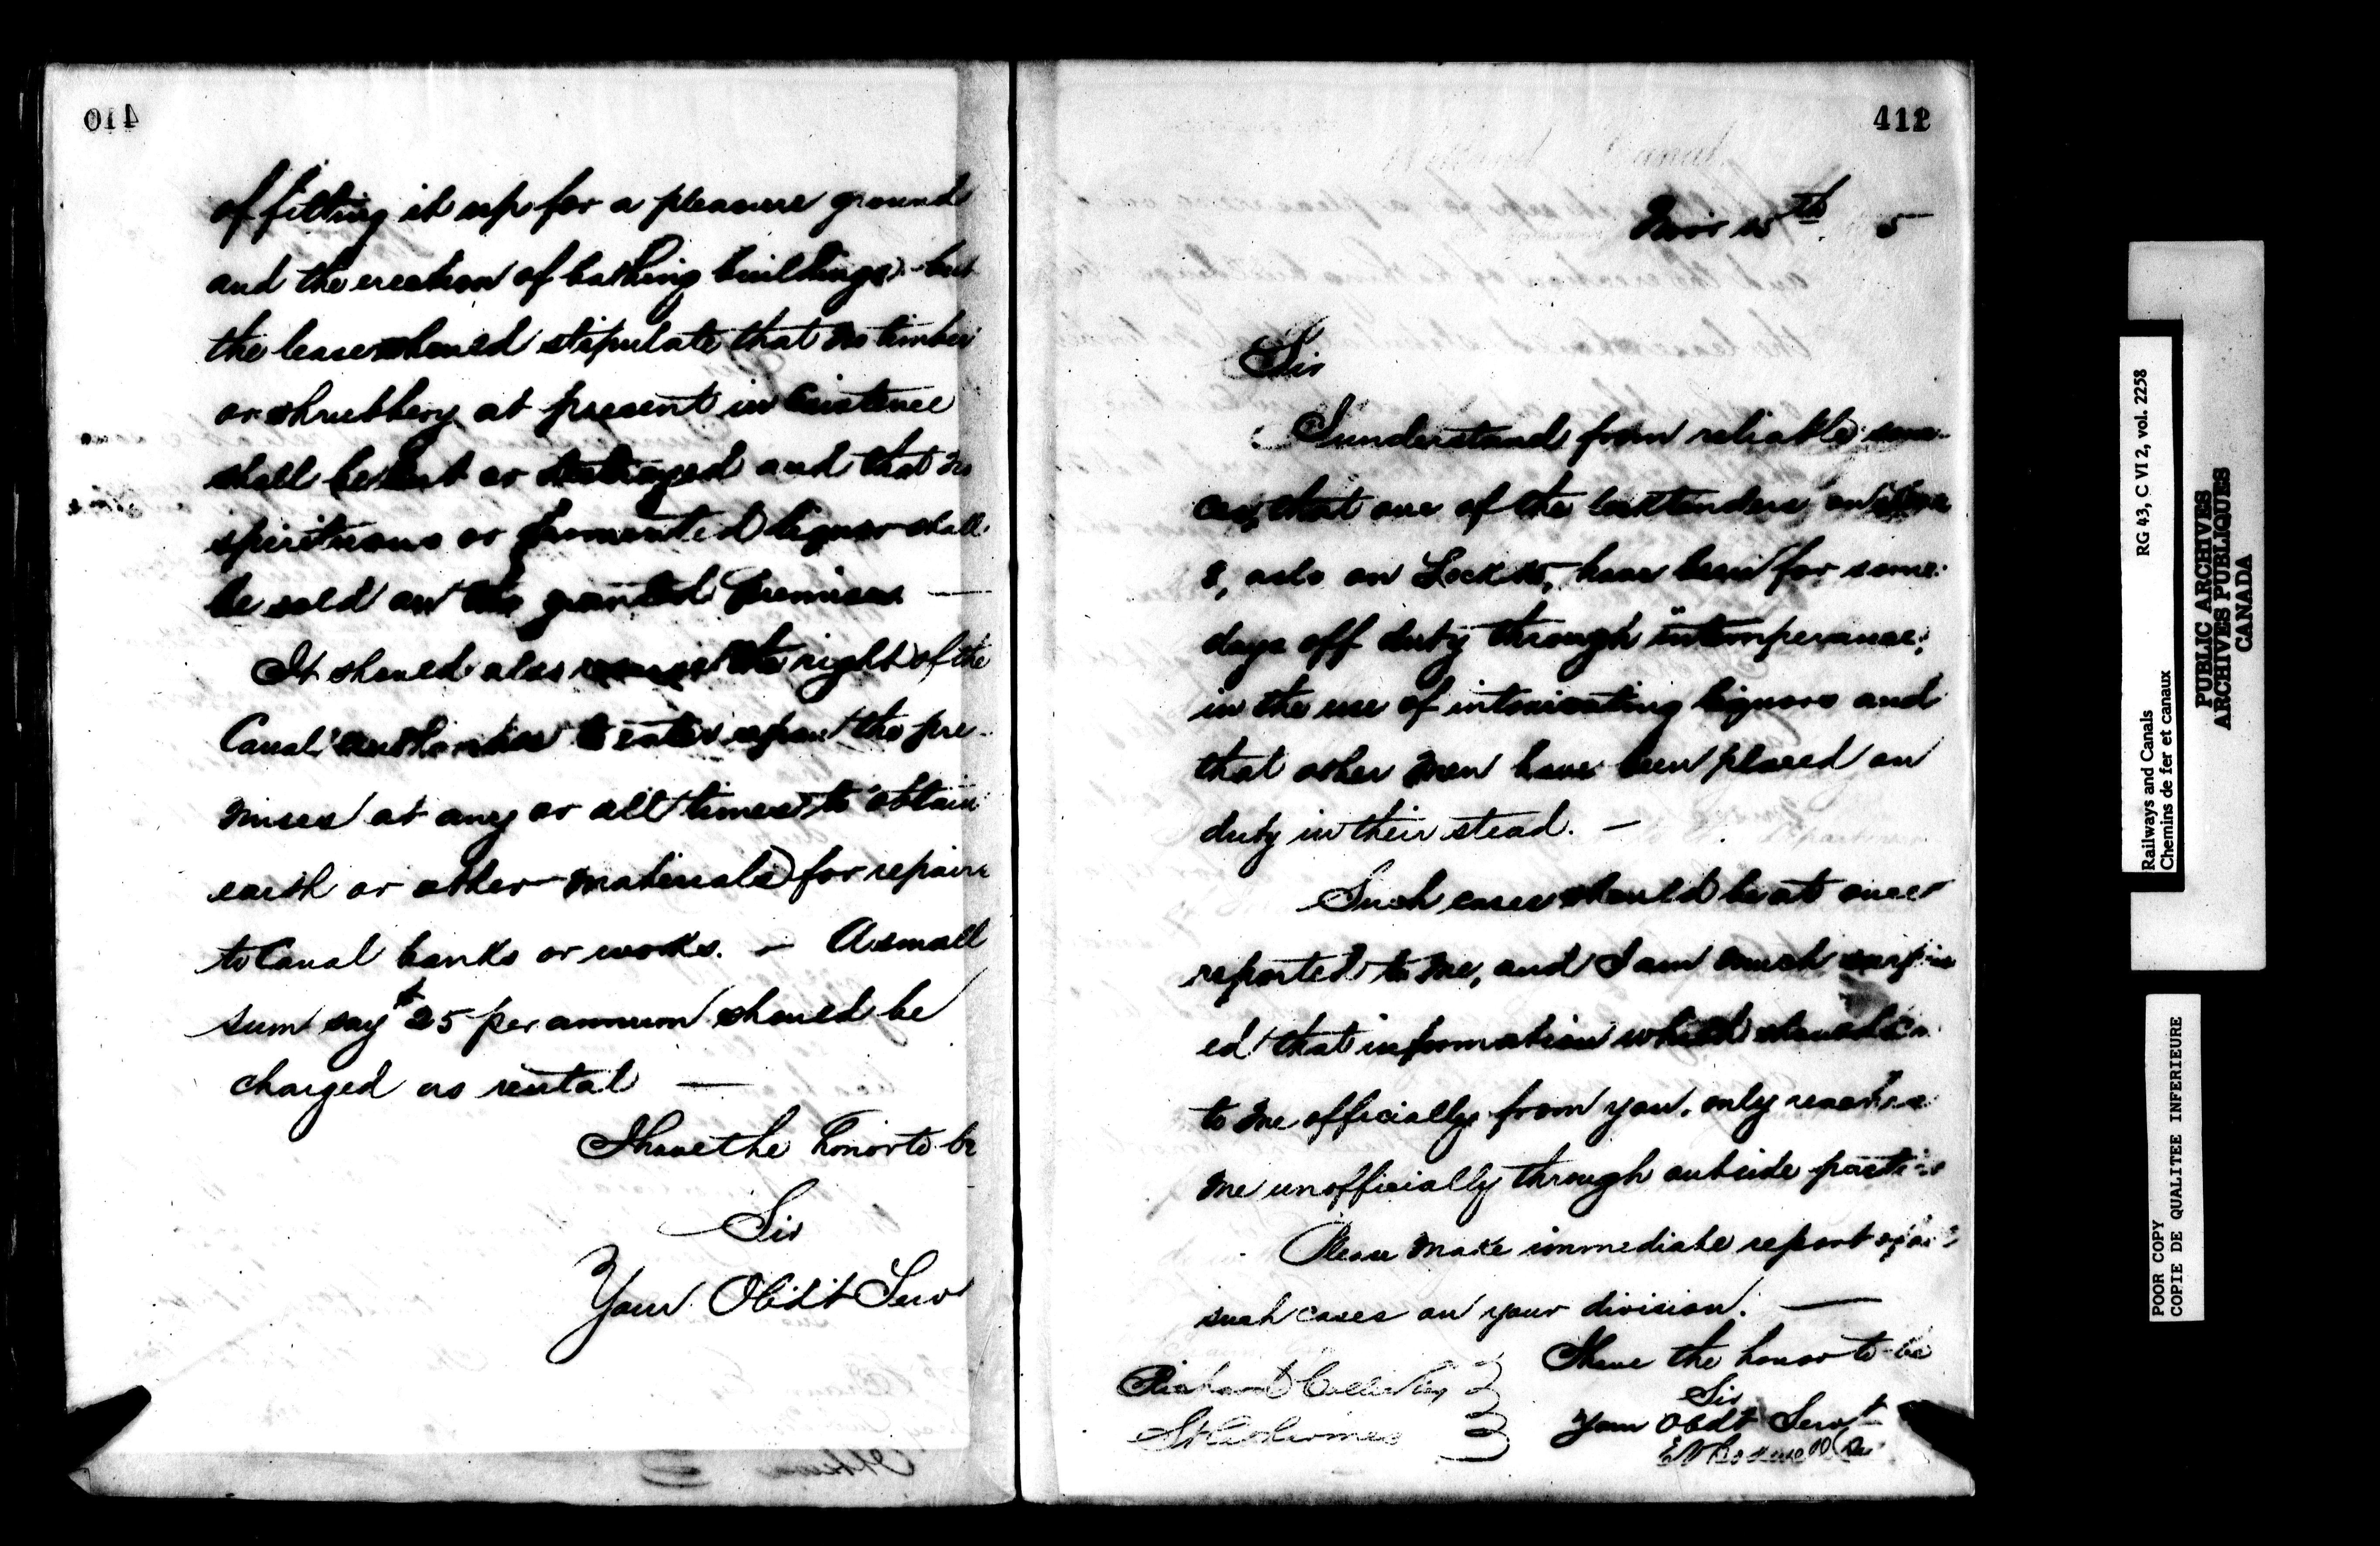 410
of fitting it up for a pleasure ground
and the erection of bathing buildings - but
the lease should stipulate that no timber
or shrubbery at present in existence
shall be cut or destroyed and that no
spirituous or fromented liquor shall
be sold on the granted premises —
It should also the right of the
Canal authorities to enter upon the pre-
mises at any or all times to obtain
earth or other materials for repairs
to Canal banks or works. — A small
sum say $25 per annum should be
charged as rental —
I have the honor to be
Sir
Your Obdt Serv
412
Welland Canal
Novr 15th 5
Sir
I understand from reliable sour-
ces, that one of the locktenders on
8, also on Lock have been for some
days off duty through intemperance,
in the use of intoxicating liquors and
that other men have been placed on
duty in their stead. —
Such cases should be at once
reported to me, and I am much surpris
ed that information which should
to me officially from you, only reaches
me unofficially through outside parties
Please make immediate report
such cases on your division. —
I have the honor to be
Sir
Your Obdt Servt
Richard
St Catherines
Railways and Canals
RG 43, C VI 2, vol. 2258
Chemins de fer et canaux
PUBLIC ARCHIVES
ARCHIVES PUBLIQUES
CANADA
POOR COPY
COPIE DE QUALITEE INFERIEURE